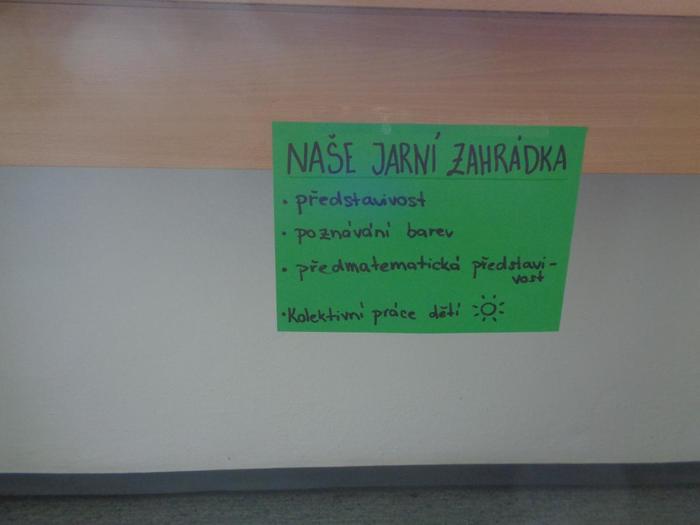 NAŠE JARNÍ ZAHRÁDKA
• představivost
• poznávání barev
• předmatematická představi-
vost
• Kolektivní práce dětí